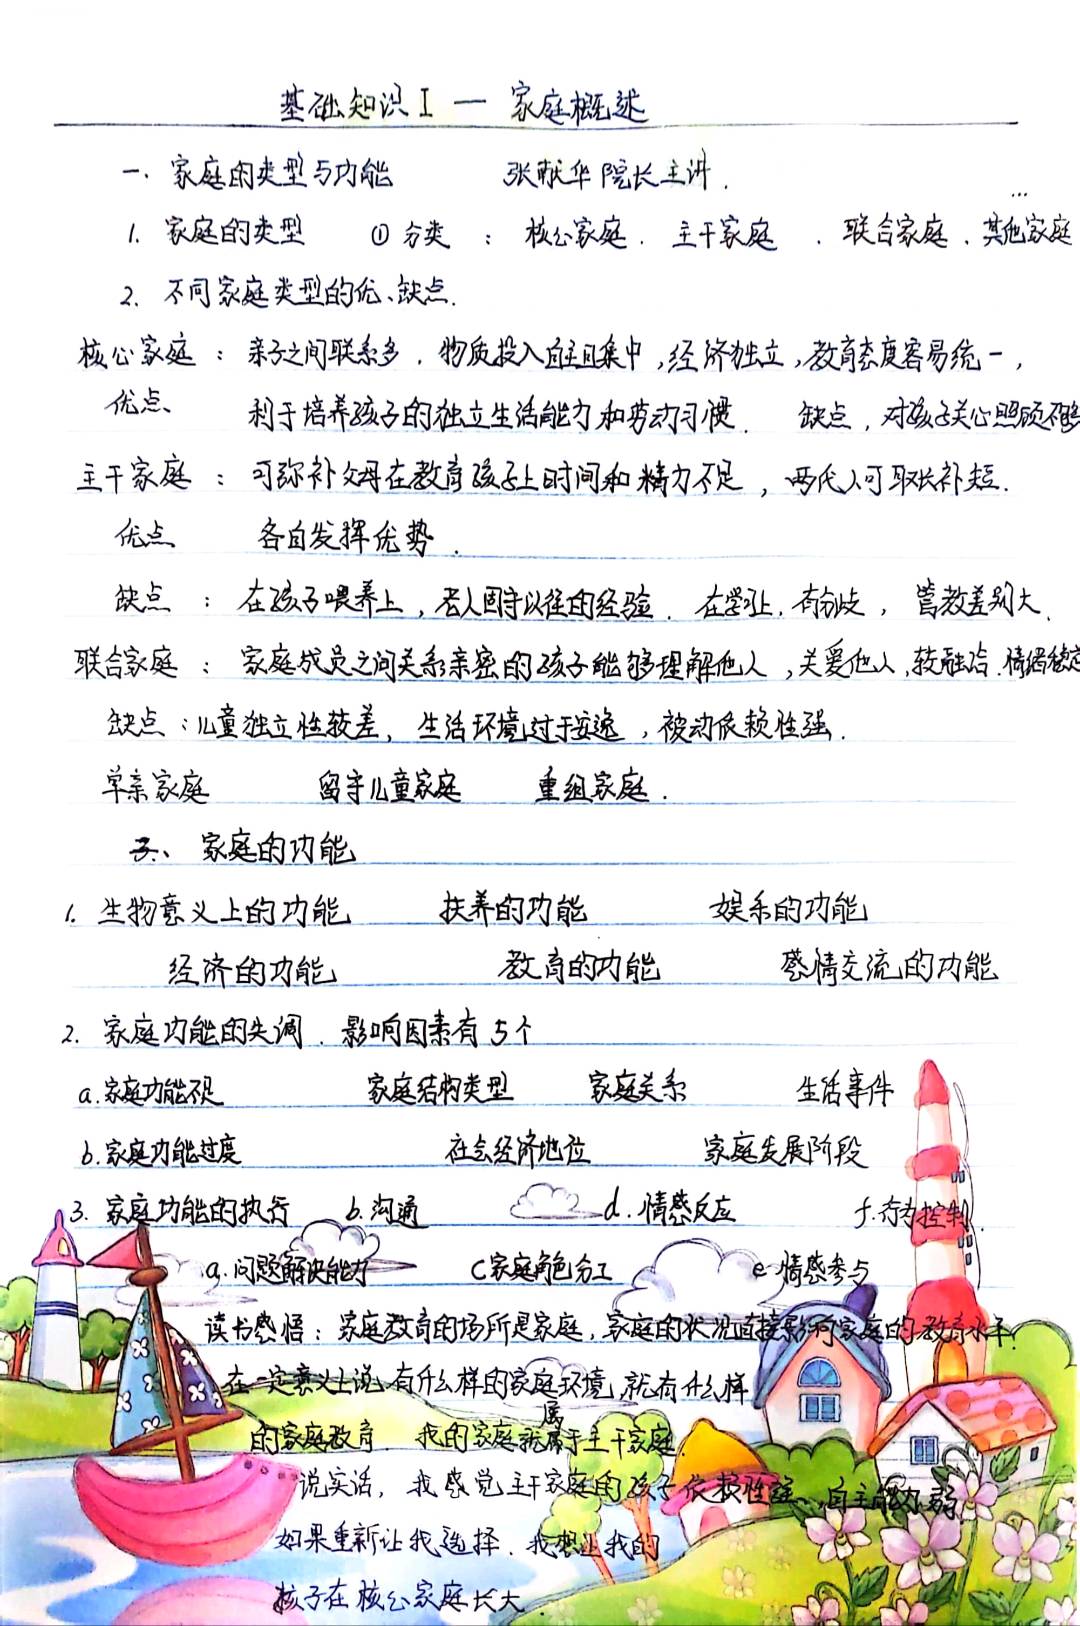 基础知识I — 家庭概述
一、家庭的类型与功能 张献华院长主讲.
1. 家庭的类型 ①分类：核心家庭. 主干家庭. 联合家庭. 其他家庭...
2. 不同家庭类型的优、缺点.
核心家庭：亲子之间联系多. 物质投入自主且集中,经济独立,教育态度容易统一,
优点、 利于培养孩子的独立生活能力和劳动习惯. 缺点,对孩子关心照顾不够
主干家庭：可弥补父母在教育孩子上时间和精力不足,两代人可取长补短.
优点 各自发挥优势.
缺点：在孩子喂养上,老人固守以往的经验. 在学习上.有分歧,管教差别大.
联合家庭：家庭成员之间关系亲密的孩子能够理解他人,关爱他人,较融洽.情绪稳定
缺点：儿童独立性较差,生活环境过于安逸,被动依赖性强.
单亲家庭 留守儿童家庭 重组家庭.
二、家庭的功能
1. 生物意义上的功能 扶养的功能 娱乐的功能
经济的功能 教育的功能 感情交流的功能
2. 家庭功能的失调. 影响因素有5个
a.家庭功能不足 家庭结构类型 家庭关系 生活事件
b.家庭功能过度 社会经济地位 家庭发展阶段
3. 家庭功能的执行 b.沟通 d.情感反应 f.行为控制.
a.问题解决能力 C家庭角色分工 e.情感参与
读书感悟：家庭教育的场所是家庭,家庭的状况直接影响家庭的教育水平.
在一定意义上说,有什么样的家庭环境,就有什么样
的家庭教育. 我的家庭就属于主干家庭.
说实话, 我感觉主干家庭的孩子依赖性强、自主能力弱
如果重新让我选择. 我想让我的
孩子在核心家庭长大.